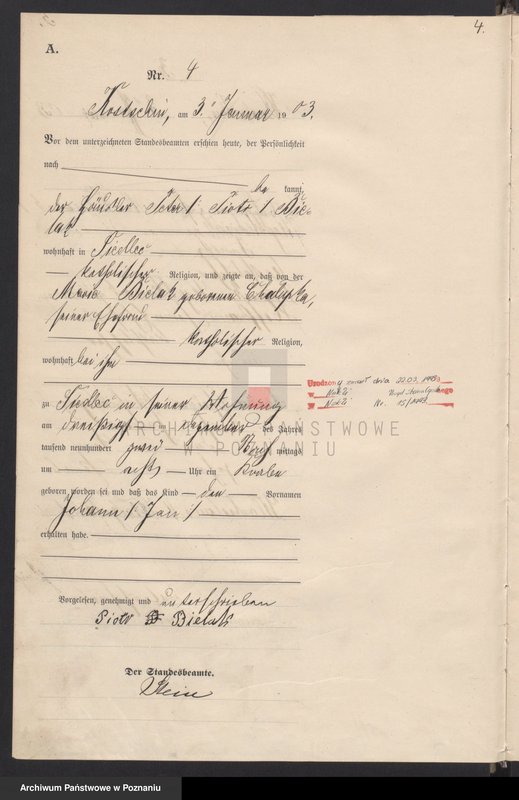 4.
A.
Nr. 4
Kostschin, am 3. Januar 1903.
Vor dem unterzeichneten Standesbeamten erschien heute, der Persönlichkeit
nach
be kannt,
der Häusler Peter / Piotr / Bie-
lak
wohnhaft in Siedlec
katholischer Religion, und zeigte an, daß von der
Marie Bielak geborenen
seiner Ehefrau
katholischer Religion,
wohnhaft bei ihm
zu Siedlec in seiner Wohnung
am dreißigsten Dezember des Jahres
tausend neunhundert zwei Vor mittags
um acht Uhr ein Knabe
geboren worden sei und daß das Kind den Vornamen
Johann / Jan /
erhalten habe.
Vorgelesen, genehmigt und unterschrieben
Piotr Bielak
Der Standesbeamte.
Urodzony zmarł dnia 22.03.
w
Nr.
ARCHIWUM PAŃSTWOWE
W POZNANIU
Archiwum Państwowe w Poznaniu